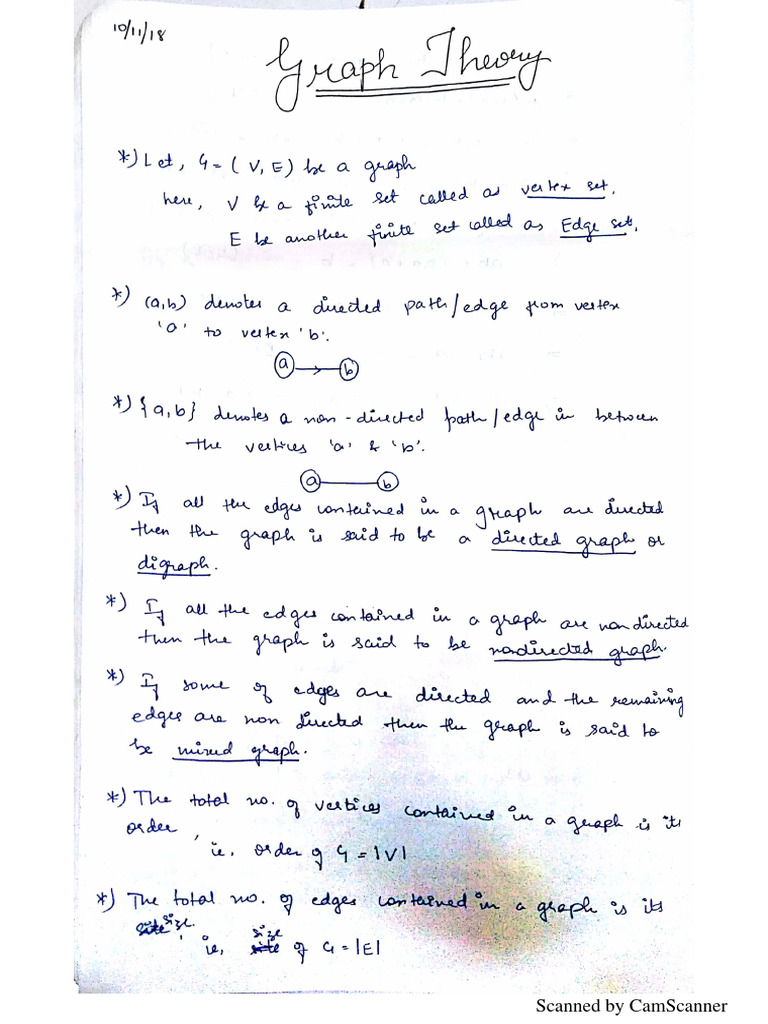 10/11/18
Graph Theory
*) Let, G = (V, E) be a graph
here, V be a finite set called as vertex set.
E be another finite set called as Edge set.
*) (a,b) denotes a directed path/edge from vertex
'a' to vertex 'b'.
a b
*) {a,b} denotes a non-directed path/edge in between
the vertices 'a' & 'b'.
a b
*) If all the edges contained in a graph are directed
then the graph is said to be a directed graph or
digraph.
*) If all the edges contained in a graph are nondirected
then the graph is said to be nondirected graph.
*) If some of edges are directed and the remaining
edges are non directed then the graph is said to
be mixed graph.
*) The total no. of vertices contained in a graph is its
order, ie. order of G = |V|
*) The total no. of edges contained in a graph is its
size, ie, size of G = |E|
Scanned by CamScanner